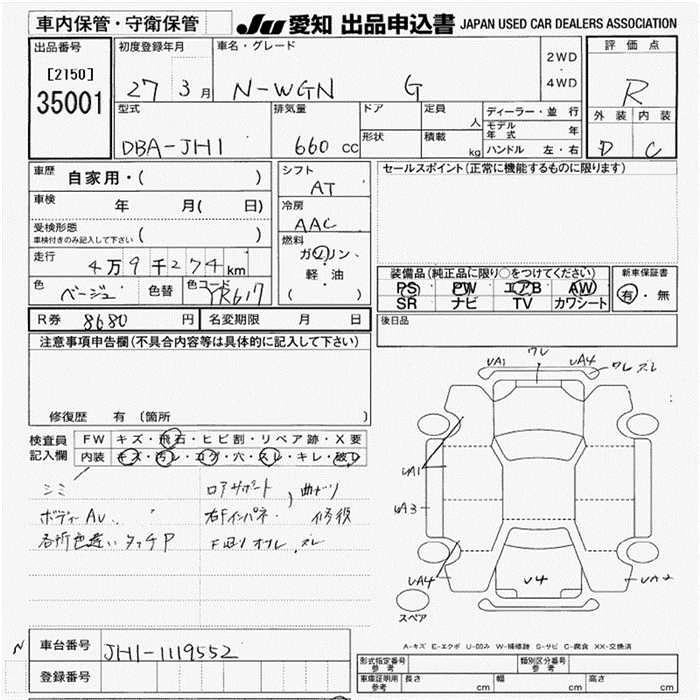 車内保管・守衛保管
JU 愛知 出品申込書 JAPAN USED CAR DEALERS ASSOCIATION
出品番号 初度登録年月 車名・グレード 評価点
[2150]
35001
27 3月 N-WGN G
2WD
・
4WD
R
外装 内装
D C
型式 排気量 ドア 定員 人 ディーラー・並行
DBA-JH1 660cc 形状 積載 kg
モデル年式 年
ハンドル 左・右
車歴 自家用・( )
シフト AT
セールスポイント(正常に機能するものに限ります)
車検 年 月( 日)
冷房 AAC
受検形態
車検付きのみ記入して下さい ( )
燃料 ガソリン・軽油 ( )
走行 4万9千274km
色 ベージュ 色替 色コード YR617
装備品(純正品に限り○をつけてください) 新車保証書
PS PW エアB AW 有・無
SR ナビ TV カワシート
R券 8680円 名変期限 月 日
後日品
注意事項申告欄(不具合内容等は具体的に記入して下さい)
修復歴 有(箇所
ワレ
UA1 UA4 ワレ ズレ
検査員記入欄
FW キズ・飛石・ヒビ割・リペア跡・X要
内装 キズ・汚レ・コゲ・穴・スレ・キレ・破レ
UA1
シミ ロアサポート
曲ナリ
UA3
ボディーAU 右Fインパネ 修復
各所色違い タッチP F廻り オフレ.ズレ
UA4 U4 UA2
スペア
A-キズ E-エクボ U-凹み W-補修跡 S-サビ C-腐食 XX-交換済
N 車台番号 JH1-1119552
登録番号
形式指定番号 参考 類別区分番号 参考
車庫証明用 参考 長さ cm 幅 cm 高さ cm